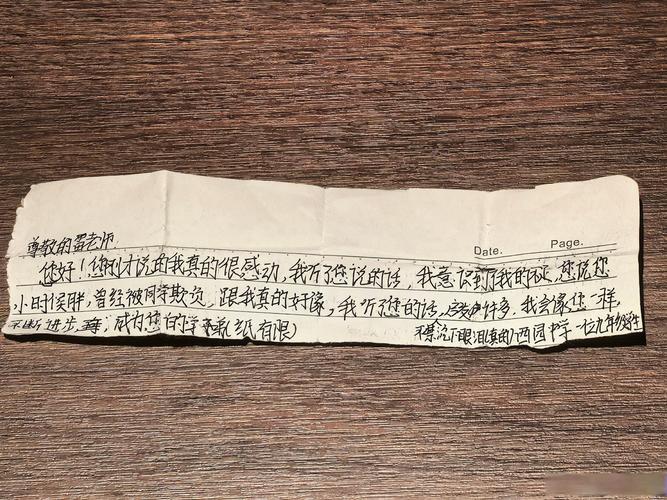 尊敬的翟老师
Date. Page.
您好!您刚才说的我真的很感动,我听了您说的话,我意识到了我的 ,您说您
小时侯胖,曾经被同学欺负,跟我真的好像,我听您的话, 许多.我会像您一样,
不断进步, ,成为您的学 (纸有限)
不禁流下眼泪真的 西园中学一位九年级学生